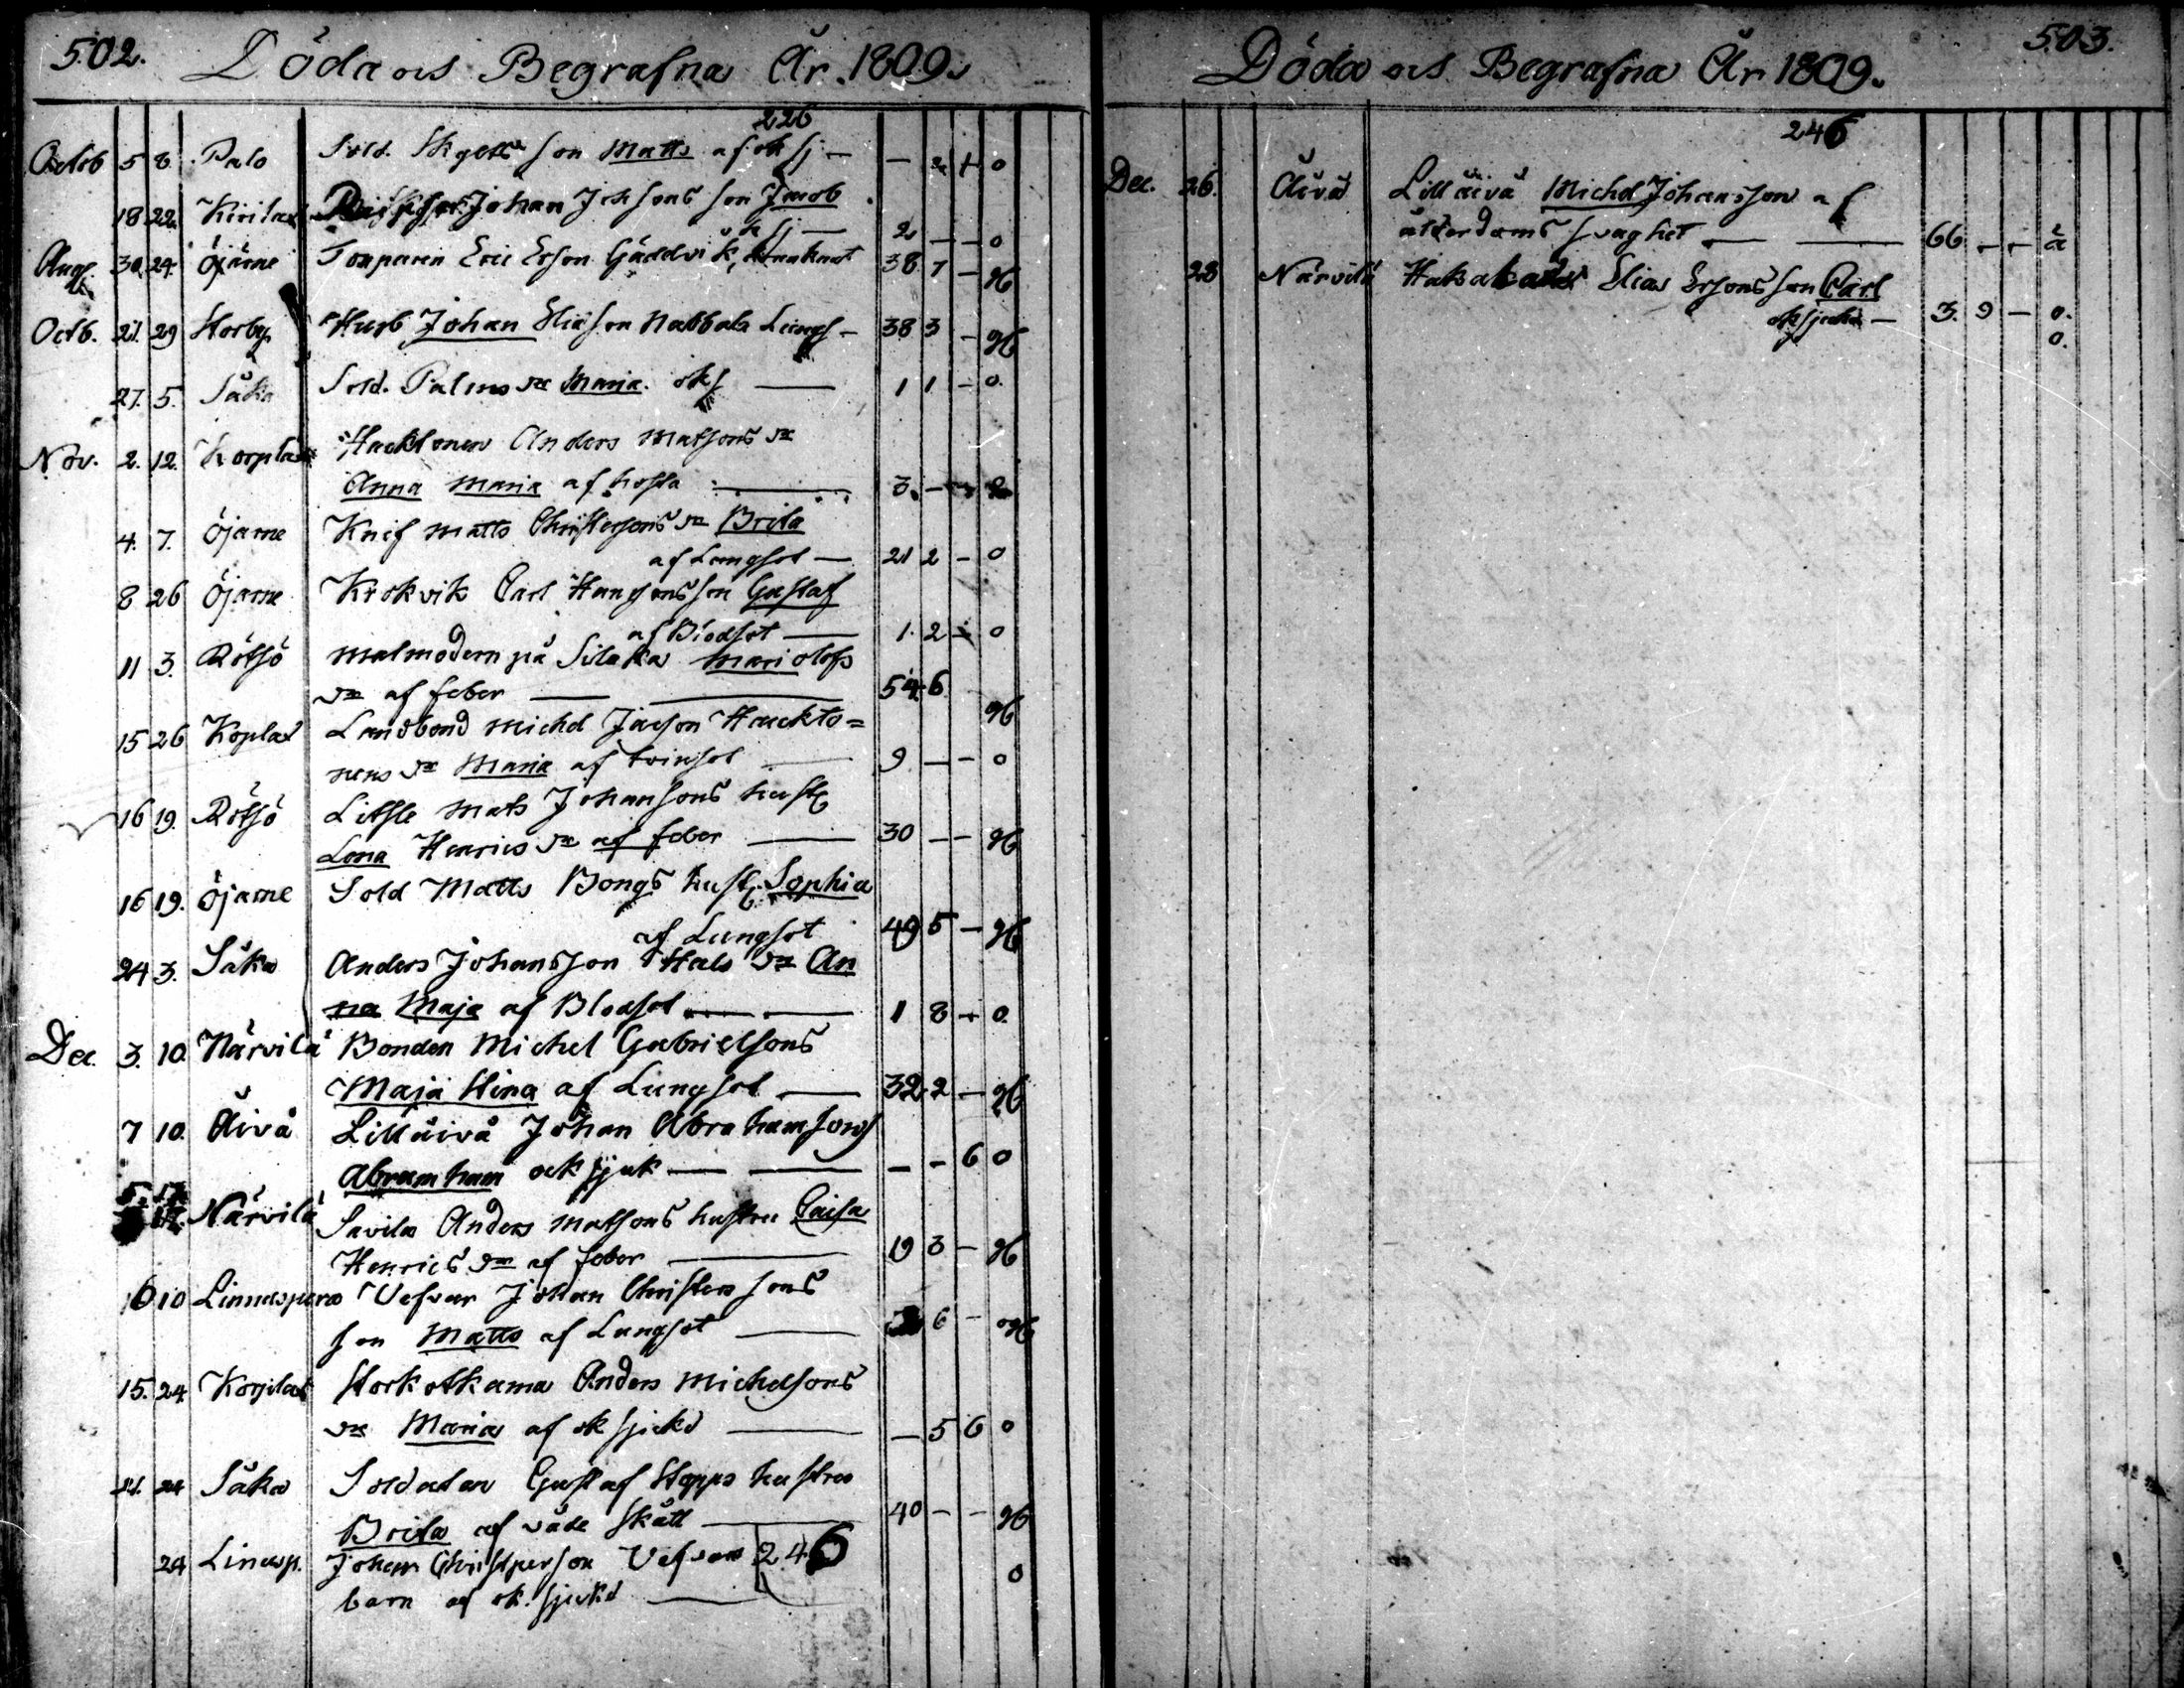 502.
Döda ocs Begrafna År. 1809.
226
Octob 5 8. Palo Sold. Skyetts son Matts af ok sj — — 2 + 0
18 22. Kirilax Johan Johsons son Jacob
k sj — 2 — — 0
Aug. 30. 24. Öjärne Tonparin Eric Erson Gäddvik, 38 7 — gb
Octb. 21. 29 Storby Husb Johan Eliäson Nabbala Lungs — 38 3 — gb
27. 5. Såka Sold. Palms dr Maria. oks — 1 1 — 0.
Nov. 2. 12. Korplax Hacktonen Anders Matsons dr
Anna Maria af hosta — 3. — —
4. 7. Öjarne Knif Matts Christersons dr Brita
af Lungsot — 21 2 — 0
8 26 Öjarne Krokvik Carl Hansons son Gustaf
af Blodsot — 1. 2 — 0
11 3. Rötsö Malmodern på Silaka Mari olofs
dr af feber — 54. 6 gb
15 26 Koplax Landbond Michel Jacson Hackto=
nens dr Maria af tvinsot — 9 — — 0
16 19. Rötsö Litsle Mats Johansons hust
Lena Henrics dr af feber — 30 — — gb
16 19. Öjarne Sold Matts Bongs hust. Sophia
af Lungsot 49 5 — gb
24 3. Såka Anders Johansson Hals dr An
na Maja af Blodsot — 1 8 — 0.
Dec. 3. 10. Närvilä Bonden Michel Gabrielsons
Maja Stina af Lungsot — 32 2 — gb
7 10. Åivå Lillåivå Johan Abrahamsons
Abramham ock sjuk — — — 6 0
5. 17. Närvilä Savila Anders Matsons hustru Caisa
Henrics dr af feber — 19 3 — gb
10 10 Linnusperä Vefvar Johan Christerssons
son Matts af Lungsot — 6 —
15. 24 Korplax Storkotkama Anders Michelsons
dr Maria af ok sjickd — — 5 6 0
21. 24 Såka Soldaten Gustaf Stopps hustru
Brita af våde skått — 40 — — gb
24 Linusp. Johan Christperson Vefvars 246
barn af ok. sjickd — 0
503.
Döda ocs Begrafna År 1809.
246
Dec. 26. Åivå Lillåivå Michel Johansson af
ålderdoms svaghet — 66 — — ä
28 Närvilä Elias Ersons son Carl
oksjickd — 3. 9 — 0.
0.